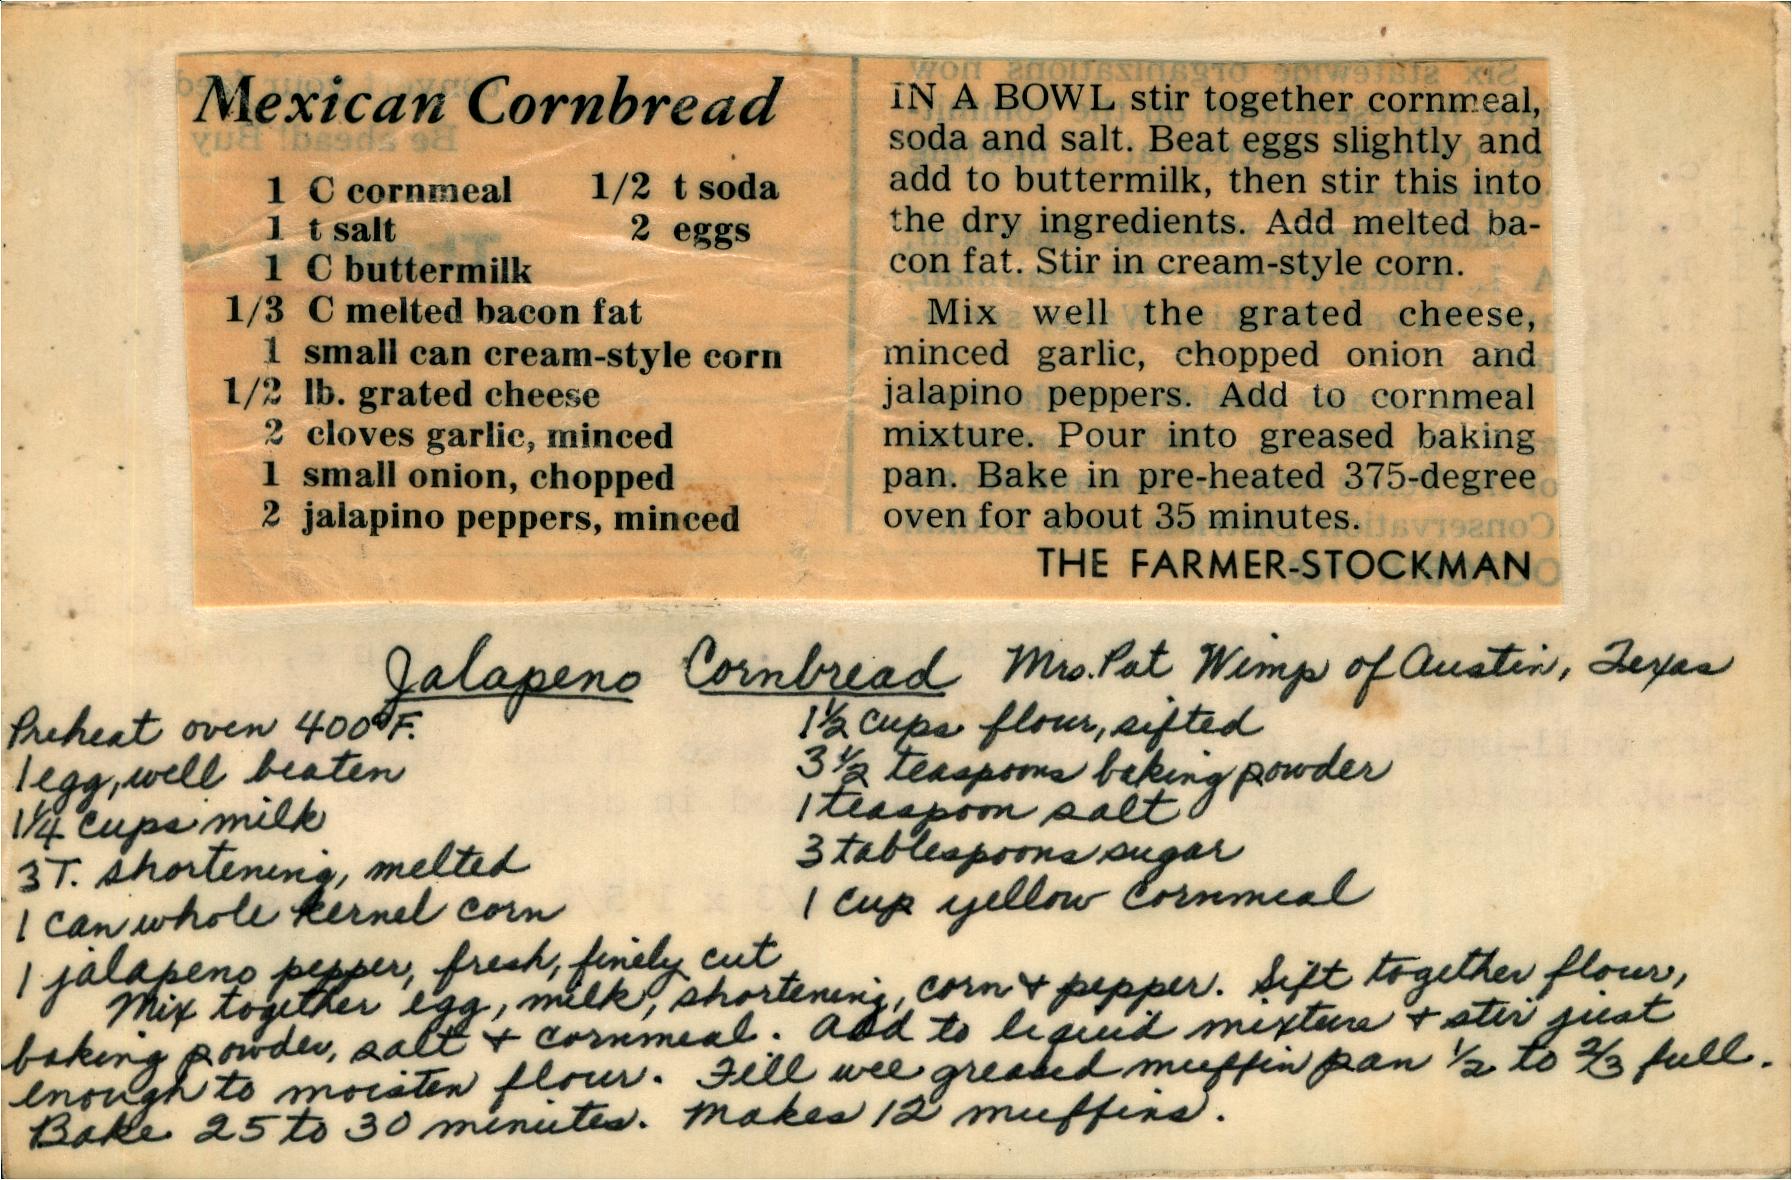 Mexican Cornbread
1 C cornmeal 1/2 t soda
1 t salt 2 eggs
1 C buttermilk
1/3 C melted bacon fat
1 small can cream-style corn
1/2 lb. grated cheese
2 cloves garlic, minced
1 small onion, chopped
2 jalapino peppers, minced
IN A BOWL stir together cornmeal,
soda and salt. Beat eggs slightly and
add to buttermilk, then stir this into
the dry ingredients. Add melted ba-
con fat. Stir in cream-style corn.
Mix well the grated cheese,
minced garlic, chopped onion and
jalapino peppers. Add to cornmeal
mixture. Pour into greased baking
pan. Bake in pre-heated 375-degree
oven for about 35 minutes.
THE FARMER-STOCKMAN
Jalapeno Cornbread Mrs. Pat Wimp of Austin, Texas
Preheat oven 400°F.
1 egg, well beaten
1 1/4 cups milk
3 T. shortening, melted
1 can whole kernel corn
1 jalapeno pepper, fresh, finely cut
1 1/2 cups flour, sifted
3 1/2 teaspoons baking powder
1 teaspoon salt
3 tablespoons sugar
1 cup yellow cornmeal
Mix together egg, milk, shortening, corn + pepper. Sift together flour,
baking powder, salt + cornmeal. Add to liquid mixture + stir just
enough to moisten flour. Fill wee greased muffin pan 1/2 to 2/3 full.
Bake 25 to 30 minutes. Makes 12 muffins.